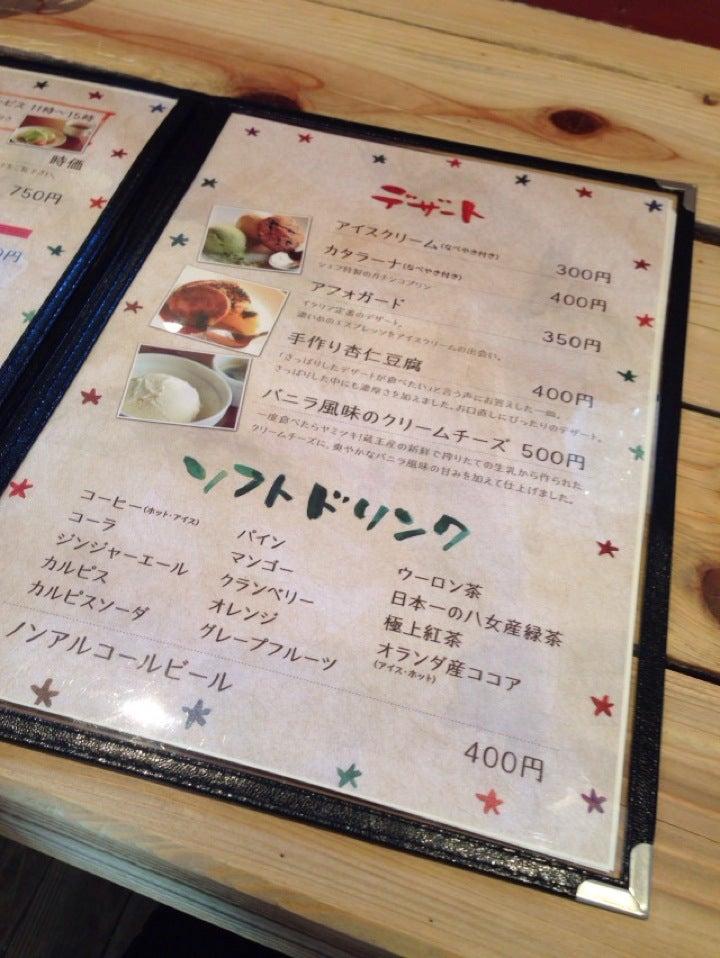 ービス 11時〜15時
時価
750円
0円
デザート
アイスクリーム(なべやき付き) 300円
カタラーナ(なべやき付き) 400円
シェフ特製のガチンコプリン
アフォガード 350円
イタリア定番のデザート。
濃いめのエスプレッソとアイスクリームの出会い。
手作り杏仁豆腐 400円
「さっぱりしたデザートが食べたい」と言う声にお答えした一皿。
さっぱりした中にも濃厚さを加えました。お口直しにぴったりのデザート。
バニラ風味のクリームチーズ 500円
一度食べたらヤミツキ!蔵王産の新鮮で搾りたての生乳から作られた
クリームチーズに、爽やかなバニラ風味の甘みを加えて仕上げました。
ソフトドリンク
コーヒー(ホット・アイス)
コーラ
ジンジャーエール
カルピス
カルピスソーダ
パイン
マンゴー
クランベリー
オレンジ
グレープフルーツ
ウーロン茶
日本一の八女産緑茶
極上紅茶
オランダ産ココア
(アイス・ホット)
ノンアルコールビール
400円